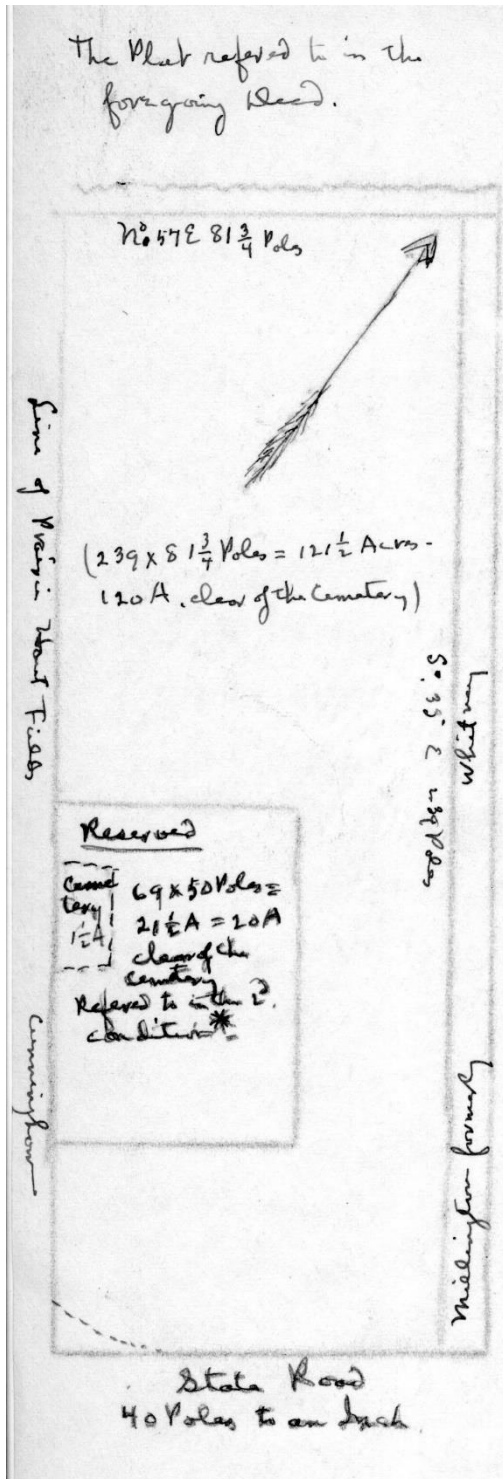 The Plat refered to in the
foregoing Deed.
No. 57 E 81 3/4 Poles
Line of Prairie Fields
(239 x 81 3/4 Poles = 121 1/2 Acres -
120 A. clear of the Cemetery)
S°. 35° E 239 Poles
Whitney
Reserved
Ceme
tery
1 1/2 A
69 x 50 Poles =
21 1/2 A = 20 A
clear of the
cemetery
Refered to in the 2d.
condition *
Cunningham
Millington formerly
State Road
40 Poles to an Inch.